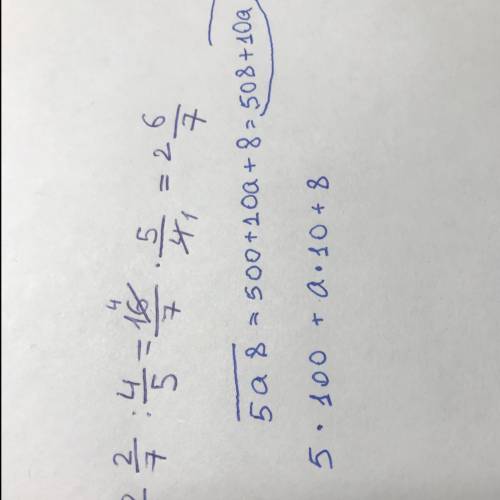 2/7 : 4/5 = 16/7 4 · 5/4 1 = 2 6/7
5a8 = 500+10a+8 = 508+10a
5·100 + a·10+8